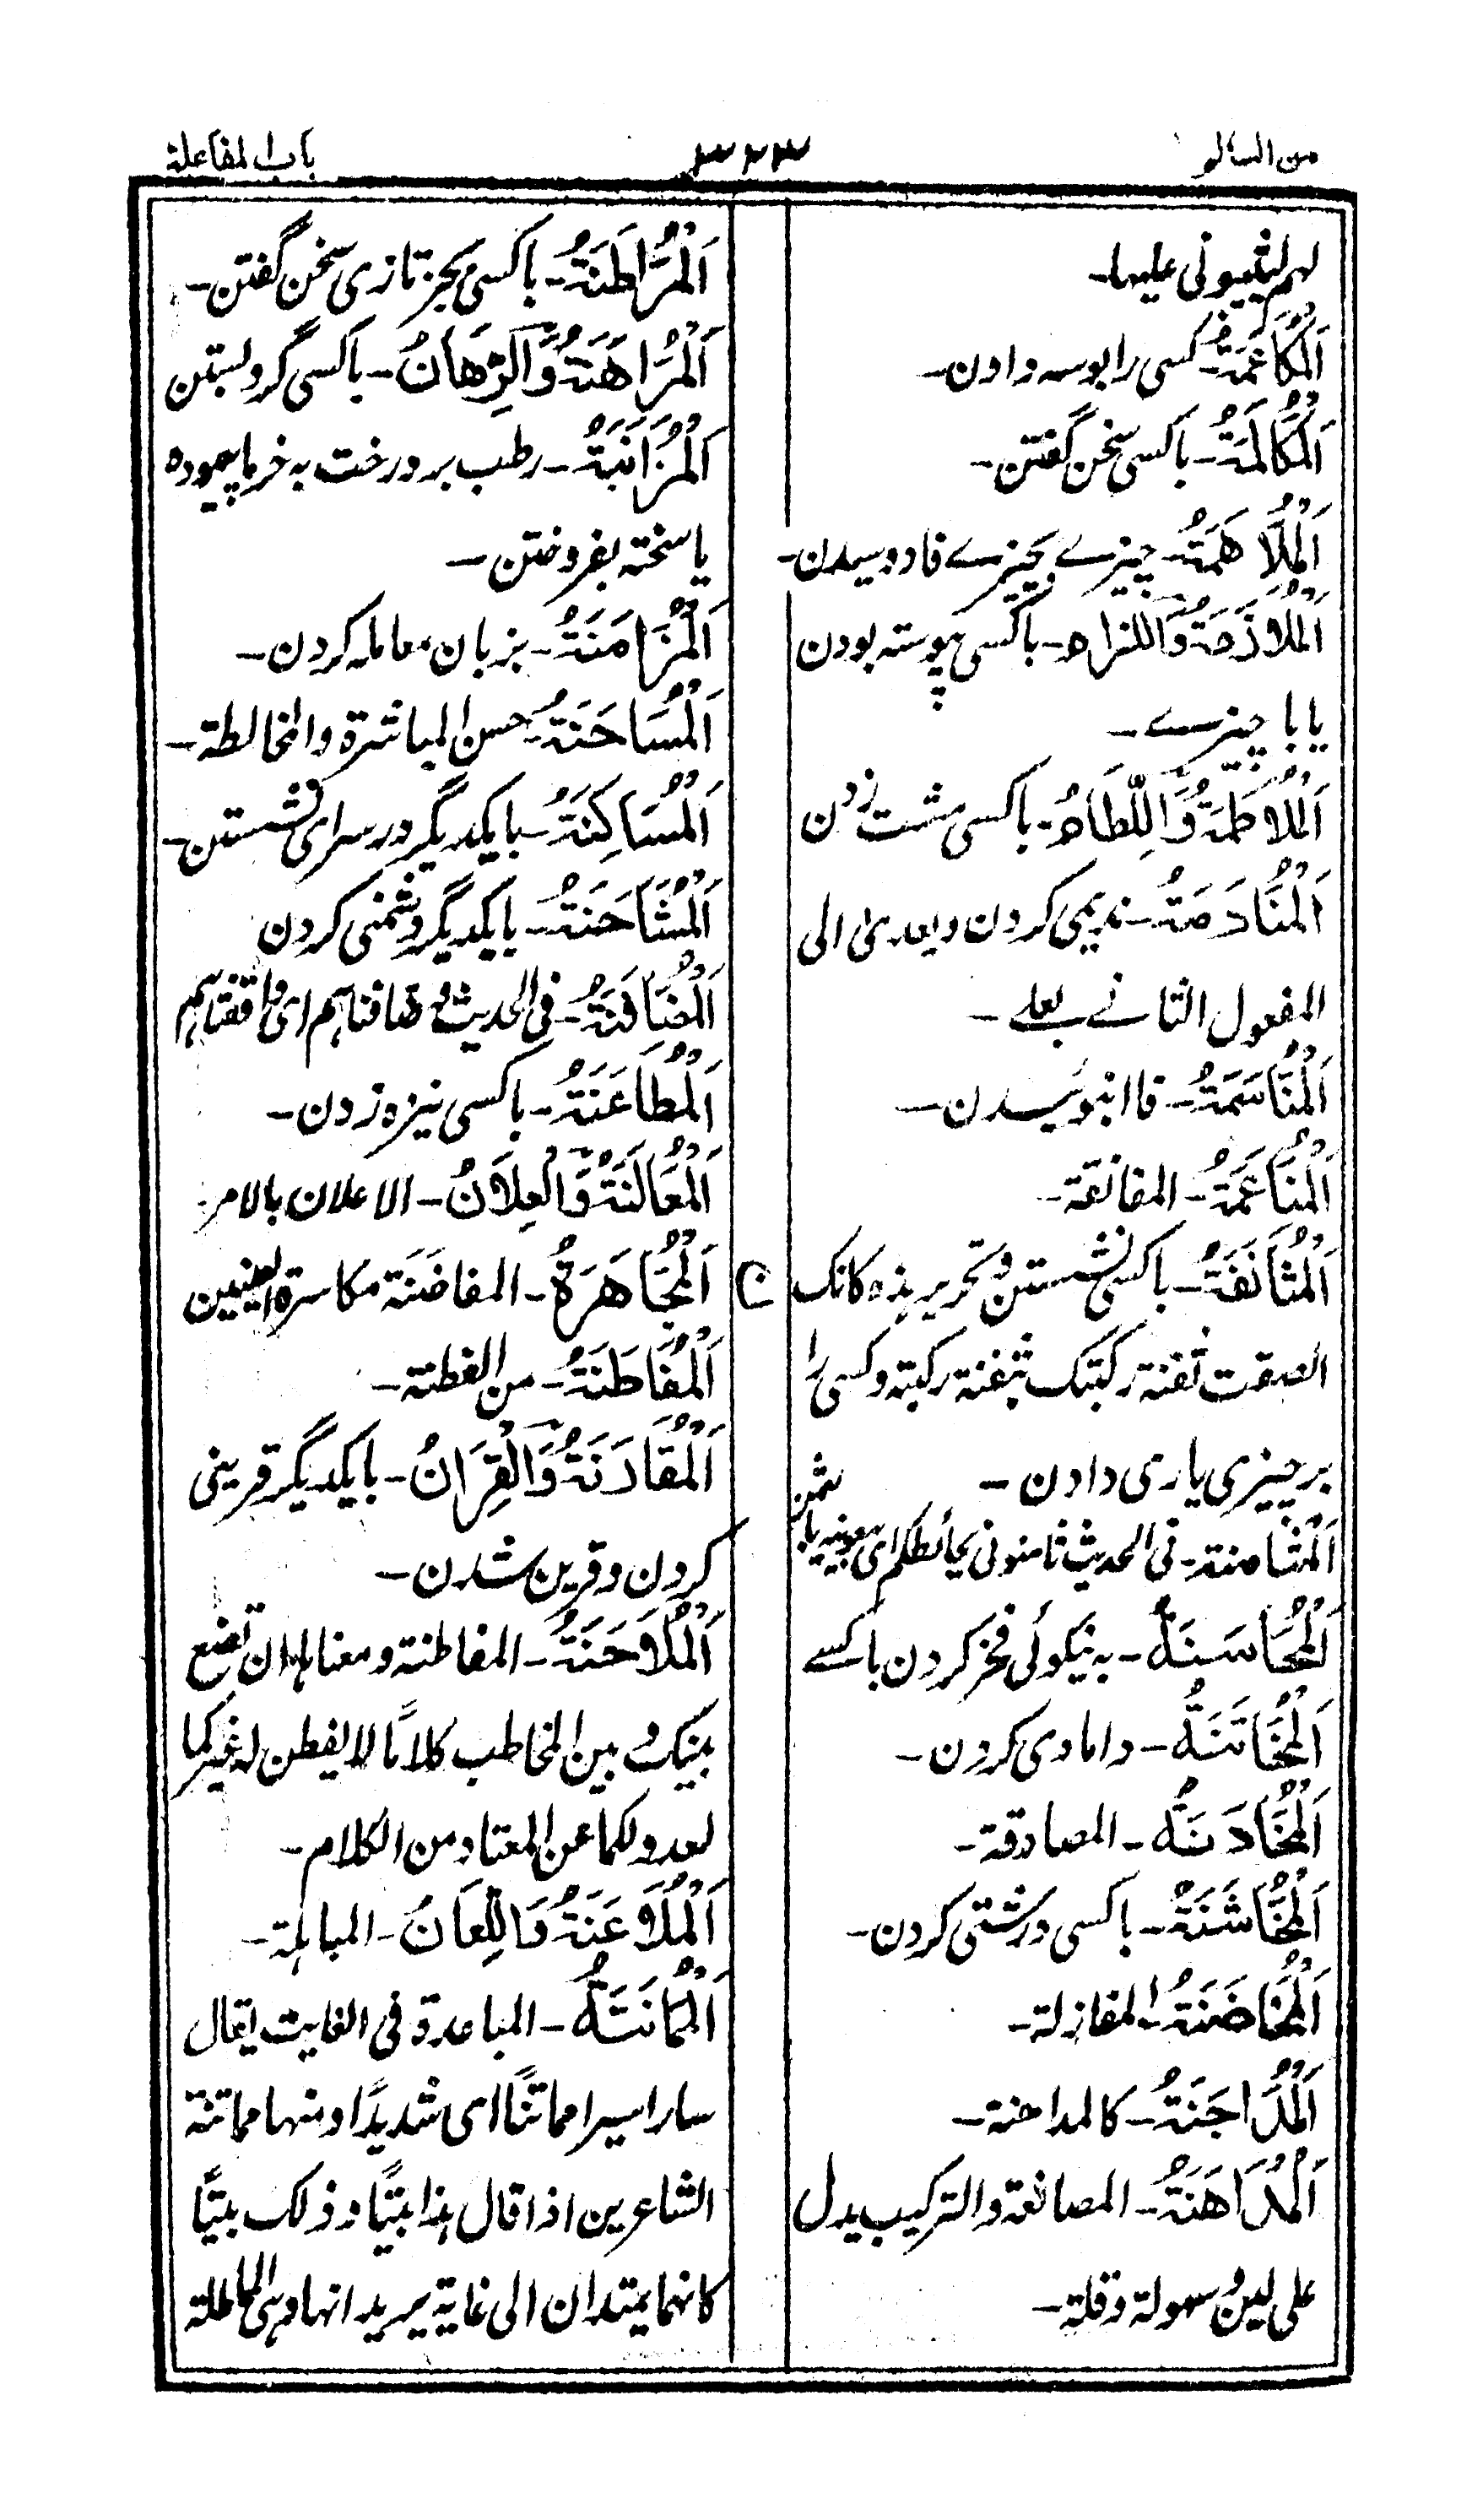 من السالم
٣٢٣
باب المفاعلة
لهم ليثيبونى عليها-
اَلْمُكَاعَمَةُ- كسى را بوسه دادن-
اَلْمُكَالَمَةُ- باكسى سخن گفتن-
اَلْمُلَاهَمَةُ- چيزے بچيزے فادوسيدن-
اَلْمُلَازَمَةُ وَاللزام- باكسى پيوسته بودن
يا با چيزے-
اَلْمُلَاطَمَةُ وَاللِّطَامُ- باكسى مشت زدن
اَلْمُنَادَمَةُ- نديمى كردن ويعدى الى
المفعول الثانے بعلے-
اَلْمُنَاسَمَةُ- فا انبوئيدن-
اَلْمُنَاعَمَةُ- المفانقة-
اَلْمُثَافَنَةُ- باكسى نشستن و تحريره كانك
الصقت ثفنة ركبتك بثفنة ركبته وكسى را
بر چيزى يارى دادن-
اَلْمُثَامنة- فى الحديث ثامنونى بحائطكم اى بيعونيه بالثمن
اَلْمُحَاسَنَةُ- به نيكوئى فخر كردن باكسے
اَلْمُخَاتَنَةُ- دامادى كردن-
اَلْمُخَادَنَةُ- المصادقة-
اَلْمُخَاشَنَةُ- باكسى درشتى كردن-
اَلْمُخَاضَنَةُ- المغازلة-
اَلْمُدَاجَنَةُ- كالمداهنة-
اَلْمُدَاهَنَةُ- المصانعة والتركيب يدل
على لين وسهولة وقلة-
اَلْمُرَاطَنَةُ- باكسى بجز تازى سخن گفتن-
اَلْمُرَاهَنَةُ وَالرِّهَانُ- باكسى گرو بستن
اَلْمُزَابَنَةُ- رطب بر درخت به خرما پيموده
يا سخته بفروختن-
اَلْمُزَامَنَةُ- بزبان معامله كردن-
اَلْمُسَاحَنَةُ- حسن المباشرة والمخالطة-
اَلْمُسَاكِنَةُ- بايكديگر در سراى نشستن-
اَلْمُشَاحَنَةُ- بايكديگر دشمنى كردن
اَلْمُضَافَنَةُ- فى الحديث و ضافناهم اى وافقناهم
اَلْمُطَاعَنَةُ- باكسى نيزه زدن-
اَلْمُعَالَنَةُ وَالْعِلَانُ- الاعلان بالامر
ن اَلْمُجَاهَرَةُ- المغاضنة مكاسرة العينين
اَلْمُفَاطَنَةُ- من الفطنة-
اَلْمُقَارَنَةُ وَالْقِرَانُ- بايكديگر قرينى
كردن و قرين شدن-
اَلْمُلَاحَنَةُ- المفاطنة ومعناها ان تضع
بينك وبين المخاطب كلامًا لا يفطن له غيركما
لعدولكما عن المعتاد من الكلام-
اَلْمُلَاعَنَةُ وَاللِّعَانُ- المباهلة-
اَلْمُمَاتَنَةُ- المباعدة فى الغايت يقال
سار سيرا مماتنًا اى شديدًا ومنها مماتنة
الشاعرين اذا قال هذا بيتًا وذلك بيتًا
كانهما يمتدان الى غاية يريدانها وهى المماطلة